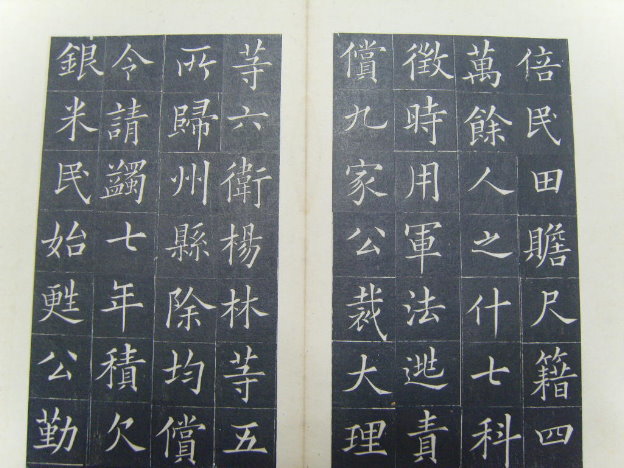 倍民田贍尺籍四
萬餘人之什七科
徵時用軍法逃責
償九家公裁大理
等六衛楊林等五
所歸州縣除均償
令請蠲七年積欠
銀米民始甦公勤